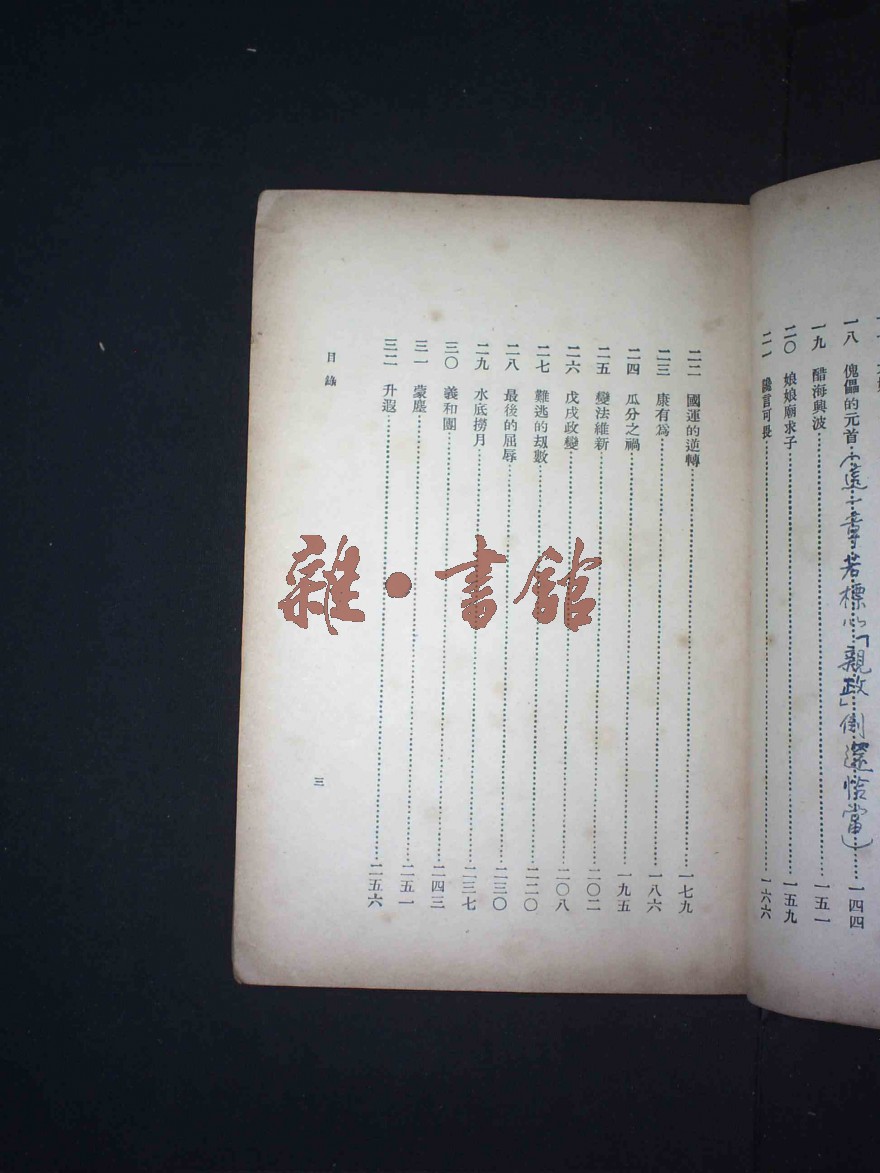 一八 傀儡的元首(這一章若標以「親政」倒還恰當)一四四
一九 醋海興波一五一
二〇 娘娘廟求子一五九
二一 讒言可畏一六六
二二 國運的逆轉一七九
二三 康有爲一八六
二四 瓜分之禍一九五
二五 變法維新二〇二
二六 戊戌政變二〇八
二七 難逃的刼數二二〇
二八 最後的屈辱二三〇
二九 水底撈月二三七
三〇 義和團二四三
三一 蒙塵二五一
三二 升遐二五六
目錄
三
雜·書館